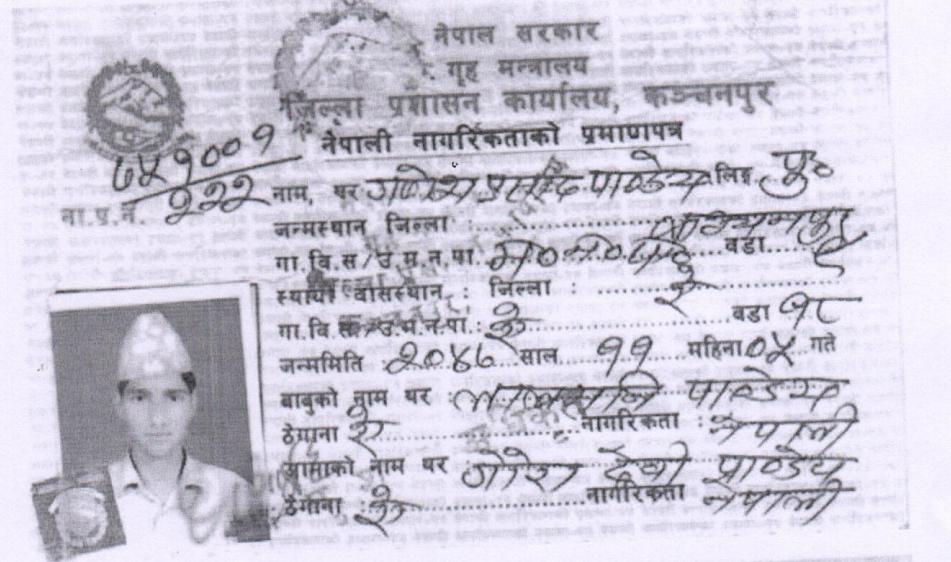 नेपाल सरकार
गृह मन्त्रालय
जिल्ला प्रशासन कार्यालय, कञ्चनपुर
नेपाली नागरिकताको प्रमाणपत्र
ना.प्र.नं. २२२
नाम, थर गणेश प्रसाद पाण्डेय लिङ्ग पु०
जन्मस्थान जिल्ला : कञ्चनपुर
गा.वि.स/उ.म.न.पा. वडा
स्थायी वासस्थान : जिल्ला : ऐ
गा.वि.स./उ.म.न.पा.: ऐ वडा १८
जन्ममिति २०४६ साल ११ महिना ०५ गते
बाबुको नाम थर पाण्डेय
ठेगाना ऐ नागरिकता : नेपाली
आमाको नाम थर देवी पाण्डेय
ठेगाना : ऐ नागरिकता नेपाली